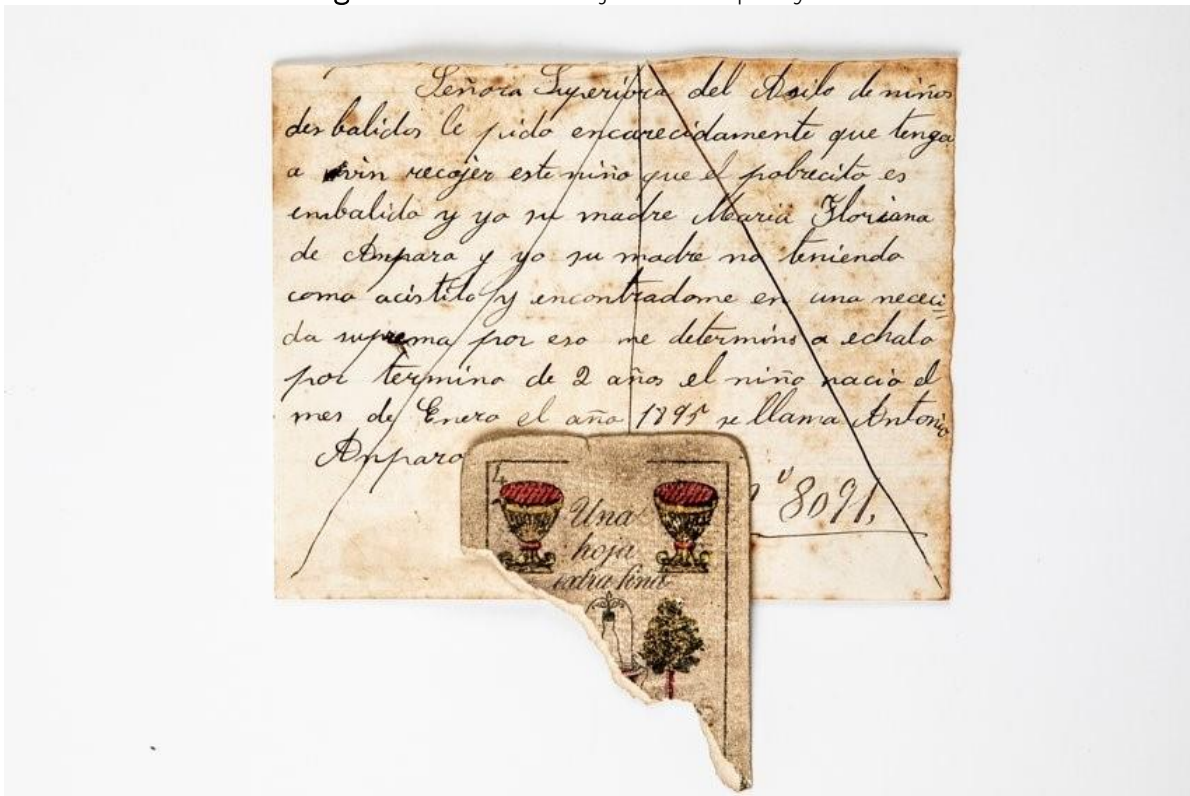 Señora Superiora del Asilo de niños
desbalidos le pido encarecidamente que tenga
a vin recojer este niño que el pobrecito es
enbalido y yo su madre Maria Floriana
de Anparo y yo su madre no teniendo
como acistilo y encontradome en una nececi
da suprema por eso me determino a echalo
por termino de 2 años el niño nacio el
mes de Enero el año 1895 se llama Antonio
Anparo
8091,
4
Una
hoja
extra fina